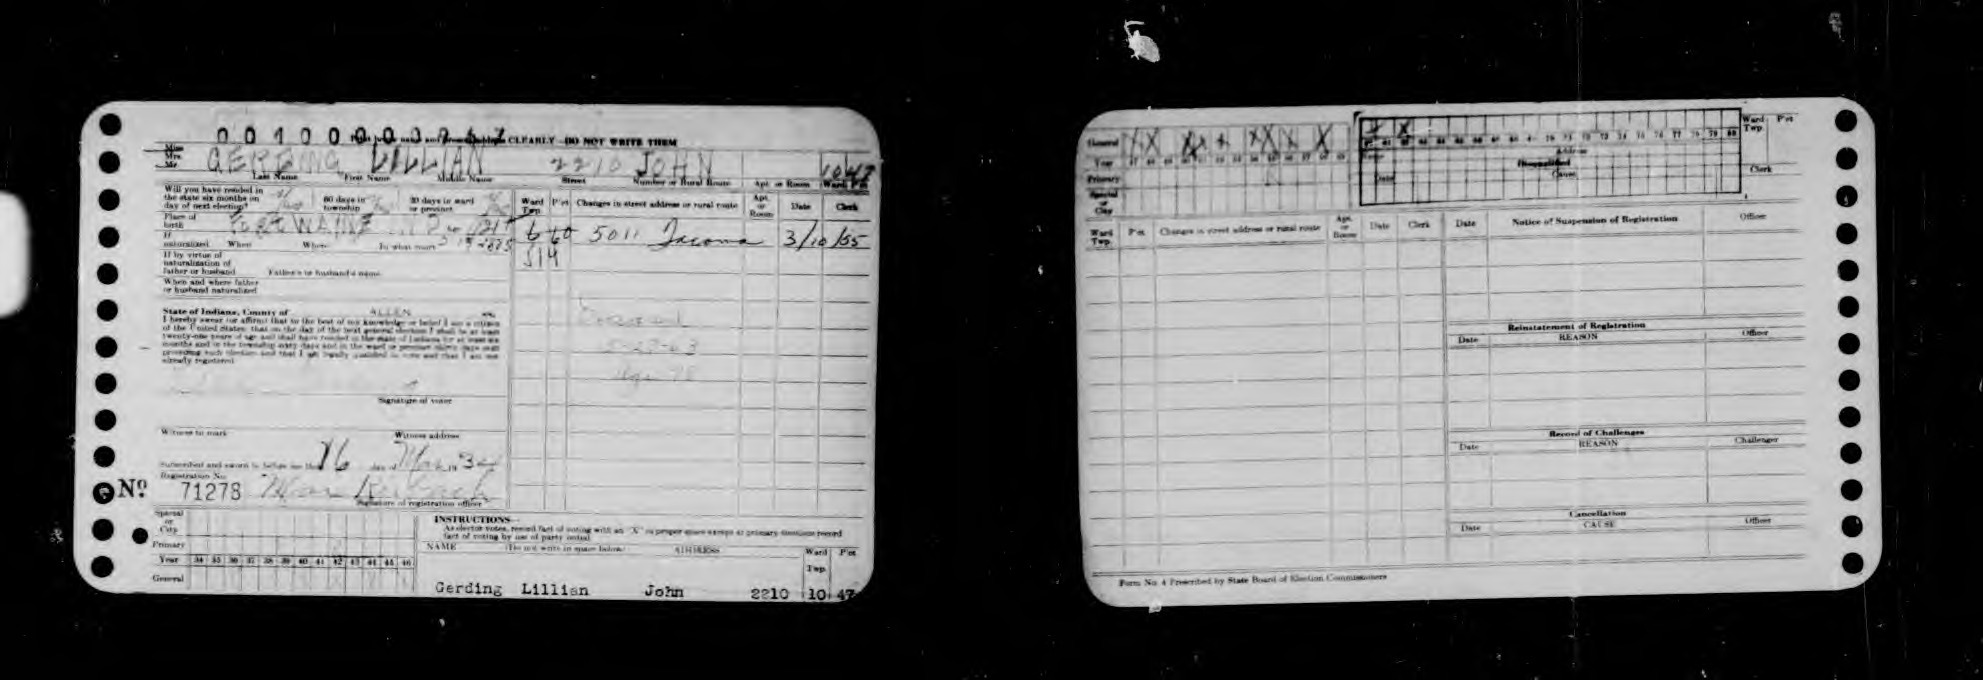 CLEARLY DO NOT WRITE THEM
Miss
Mrs.
Mr.
GERDING LILLIAN 2210 JOHN 10 47
Last Name First Name Middle Name Street Number or Rural Route Apt. or Room Ward P'ct
Will you have resided in
the state six months on
day of next election? 60 days in
township 30 days in ward
or precinct
Place of
birth FORT WAYNE
If
naturalized When Where In what court
If by virtue of
naturalization of
father or husband Father's or husband's name
When and where father
or husband naturalized
Ward
Twp. P'ct Changes in street address or rural route Apt.
or
Room Date Clerk
6 60 5011 Tacoma 3/10/55
514
Deceased
State of Indiana, County of ALLEN ss.
I hereby swear (or affirm) that to the best of my knowledge or belief I am a citizen
of the United States; that on the day of the next general election I shall be at least
twenty-one years of age and shall have resided in the state of Indiana for at least six
months and in the township sixty days and in the ward or precinct thirty days next
preceding such election and that I am legally qualified to vote and that I am not
already registered.
Signature of voter
Witness to mark Witness address
Subscribed and sworn to before me this 16 day of Mar 19 34
Registration No.
No. 71278
Signature of registration officer
Special
or
City
Primary
Year 34 35 36 37 38 39 40 41 42 43 44 45 46
General
INSTRUCTIONS—
As elector votes, record fact of voting with an "X" in proper space except at primary elections record
fact of voting by use of party initial.
NAME (Do not write in space below) ADDRESS Ward
Twp. P'ct
Gerding Lillian John 2210 10 47
General
Year
Primary
Special
or
City
Address
Disqualified
Cause
Date
Ward
Twp. P'ct
Clerk
Ward
Twp. P'ct Changes in street address or rural route Apt.
or
Room Date Clerk
Date Notice of Suspension of Registration Officer
Reinstatement of Registration
Date REASON Officer
Record of Challenges
Date REASON Challenger
Cancellation
Date CAUSE Officer
Form No. 4 Prescribed by State Board of Election Commissioners